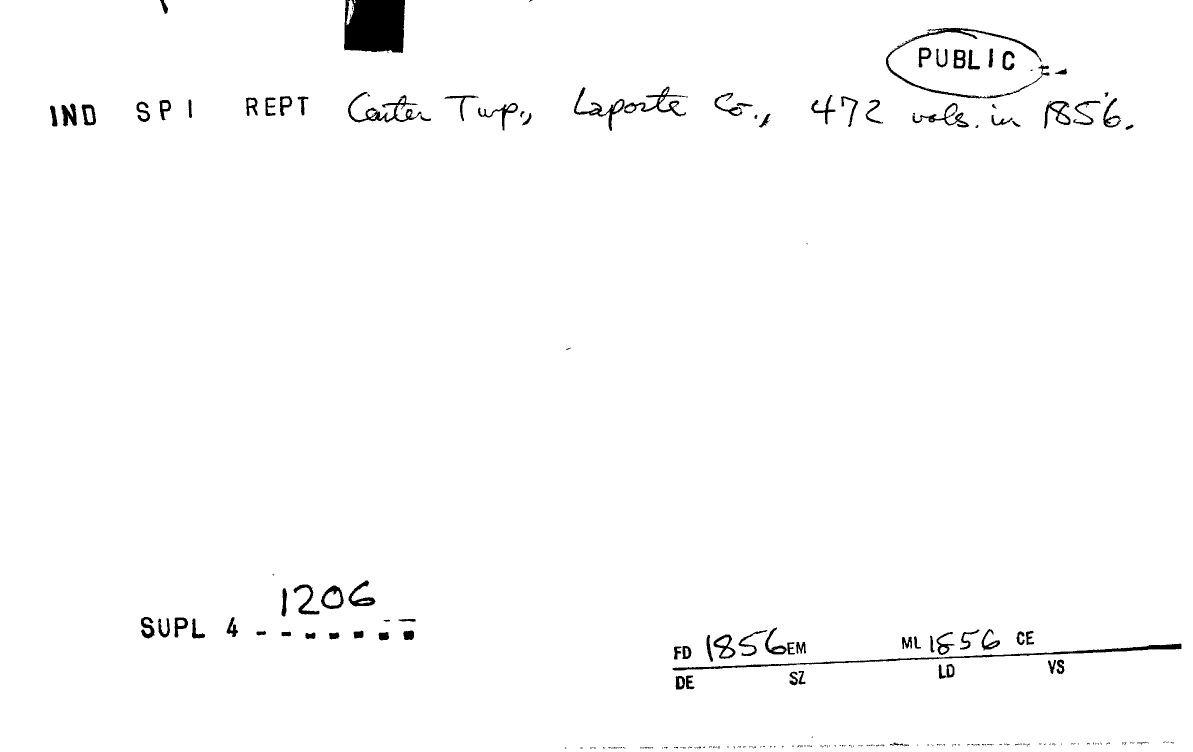 PUBLIC
IND SPI REPT Carter Twp., Laporte Co., 472 vols. in 1856.
1206
SUPL 4 - - - - - - -
FD 1856 EM ML 1856 CE
DE SZ LD VS